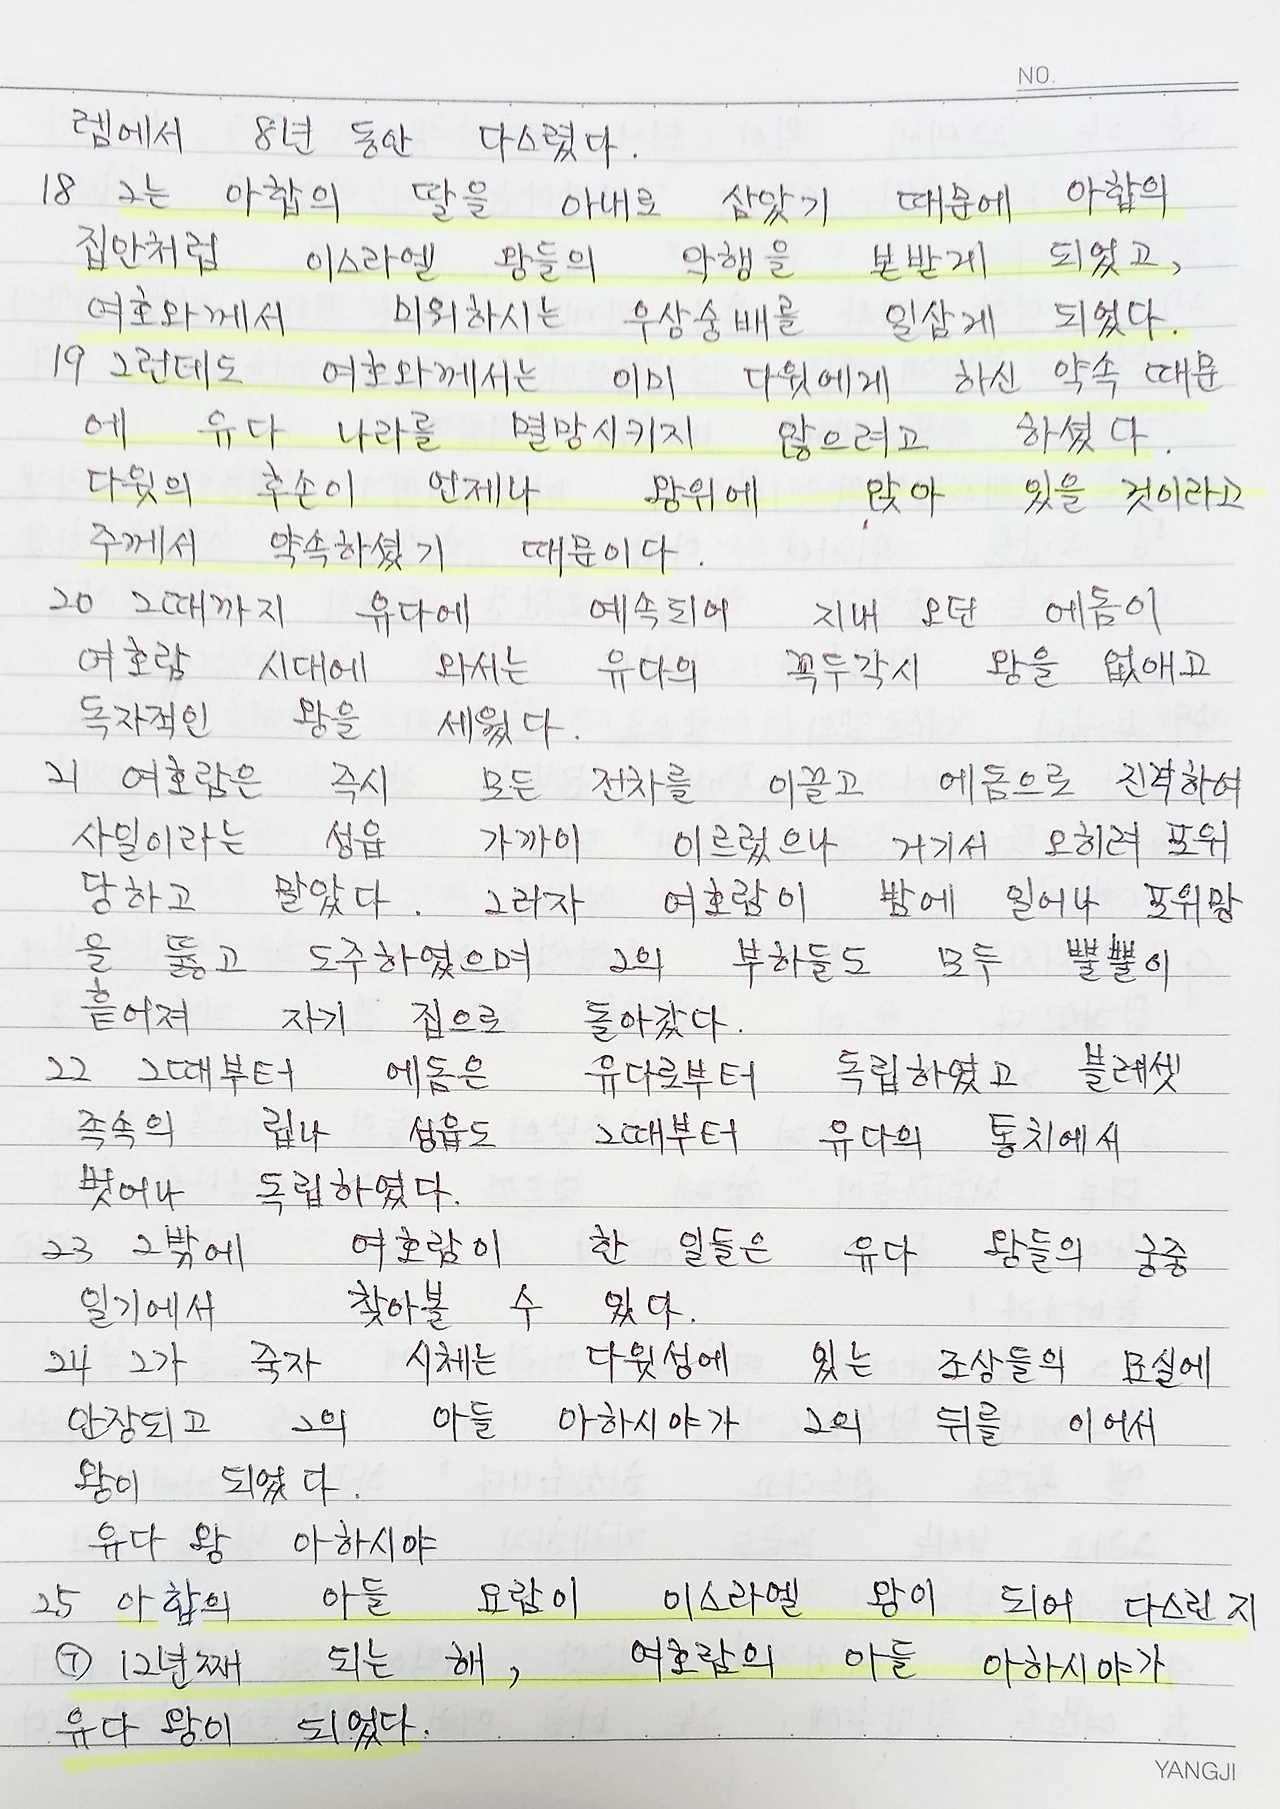 NO.
렘에서 8년 동안 다스렸다.
18 그는 아합의 딸을 아내로 삼았기 때문에 아합의
집안처럼 이스라엘 왕들의 악행을 본받게 되었고,
여호와께서 미워하시는 우상숭배를 일삼게 되었다.
19 그런데도 여호와께서는 이미 다윗에게 하신 약속 때문
에 유다 나라를 멸망시키지 않으려고 하셨다.
다윗의 후손이 언제나 왕위에 앉아 있을 것이라고
주께서 약속하셨기 때문이다.
20 그때까지 유다에 예속되어 지내 오던 에돔이
여호람 시대에 와서는 유다의 꼭두각시 왕을 없애고
독자적인 왕을 세웠다.
21 여호람은 즉시 모든 전차를 이끌고 에돔으로 진격하여
사일이라는 성읍 가까이 이르렀으나 거기서 오히려 포위
당하고 말았다. 그러자 여호람이 밤에 일어나 포위망
을 뚫고 도주하였으며 그의 부하들도 모두 뿔뿔이
흩어져 자기 집으로 돌아갔다.
22 그때부터 에돔은 유다로부터 독립하였고 블레셋
족속의 립나 성읍도 그때부터 유다의 통치에서
벗어나 독립하였다.
23 그밖에 여호람이 한 일들은 유다 왕들의 궁중
일기에서 찾아볼 수 있다.
24 그가 죽자 시체는 다윗성에 있는 조상들의 묘실에
안장되고 그의 아들 아하시야가 그의 뒤를 이어서
왕이 되었다.
유다 왕 아하시야
25 아합의 아들 요람이 이스라엘 왕이 되어 다스린 지
⑦ 12년째 되는 해, 여호람의 아들 아하시야가
유다 왕이 되었다.
YANGJI